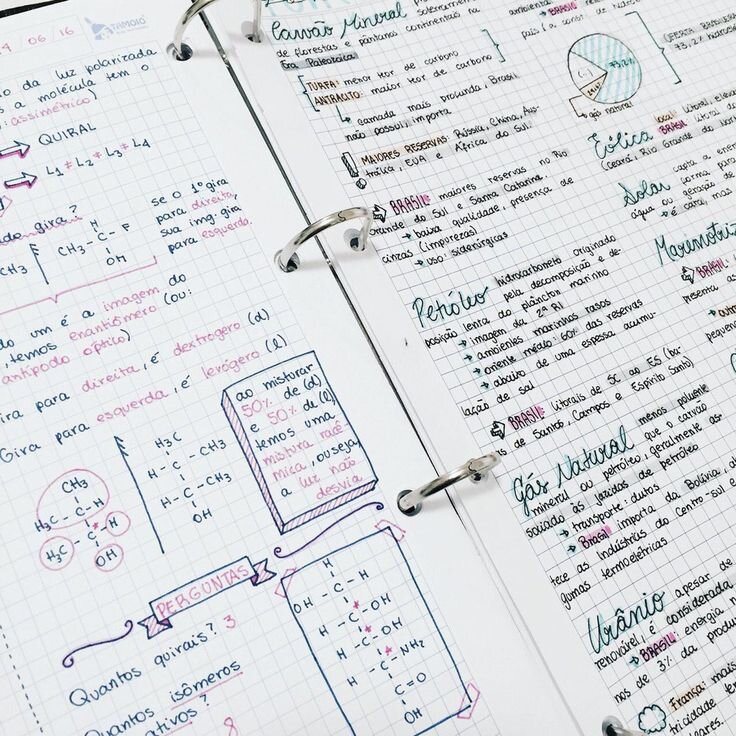 / 06 / 16
TAMOIO
da luz polarizada
a molécula tem o
assimétrico)
QUIRAL
L1 ≠ L2 ≠ L3 ≠ L4
gira?
se o 1º gira
para direita,
sua img. gira
para esquerda.
H
CH3 - C - F
OH
CH3
um é a imagem do
, temos enantiômero (ou:
antípodo óptico)
para direita, é dextrogero (d)
Gira para esquerda, é levógero (l)
ao misturar
50% de (d)
e 50% de (l),
temos uma
mistura racê-
mica, ou seja,
a luz não
desvia
H3C
H - C - CH3
H - C - CH3
OH
CH3
H3C - C - H
H3C - C - H
OH
PERGUNTAS
Quantos quirais? 3
Quantos isômeros
ativos? 8
H
OH - C - H
H - C - OH
H - C - OH
H - C - NH2
C = O
OH
Carvão Mineral
de florestas e pântanos continentais na
Era Paleozoica
TURFA: menor teor de carbono
ANTRACITO: maior teor de carbono
camada mais profunda, Brasil
não possui, importa
MAIORES RESERVAS: Rússia, China, Aus-
trália, EUA e África do Sul.
BRASIL: maiores reservas no Rio
Grande do Sul e Santa Catarina.
baixa qualidade, presença de
cinzas (impurezas)
uso: siderúrgicas
Petróleo hidrocarboneto originado
pela decomposição e de-
posição lenta do plâncton marinho
imagem da 2ª RI
ambientes marinhos rasos
oriente médio: 60% das reservas
abaixo de uma espessa acumu-
lação de sal
BRASIL: litorais de SC ao ES (ba-
is de Santos, Campos e Espírito Santo)
Gás Natural menos poluente
que o carvão
mineral ou petróleo, geralmente as-
sociado às jazidas de petróleo
transporte: dutos
Brasil importa da Bolívia,
tece as indústrias do Centro-sul e
gumas termoelétricas
Urânio apesar de
renovável, é considerada
BRASIL: energia
nos de 3% da produ
França: mais
tricidade
ambiental
BRASIL
país
73,2%
gás natural
OFERTA BRASILEIRA
73,2%
Eólica local: litoral,
BRASIL: litoral do
(Ceará, Rio Grande do
Solar capta a ener
forma para
água ou geração de
é cara, mas
Maremotriz
BRASIL:
presenta as
pequenas